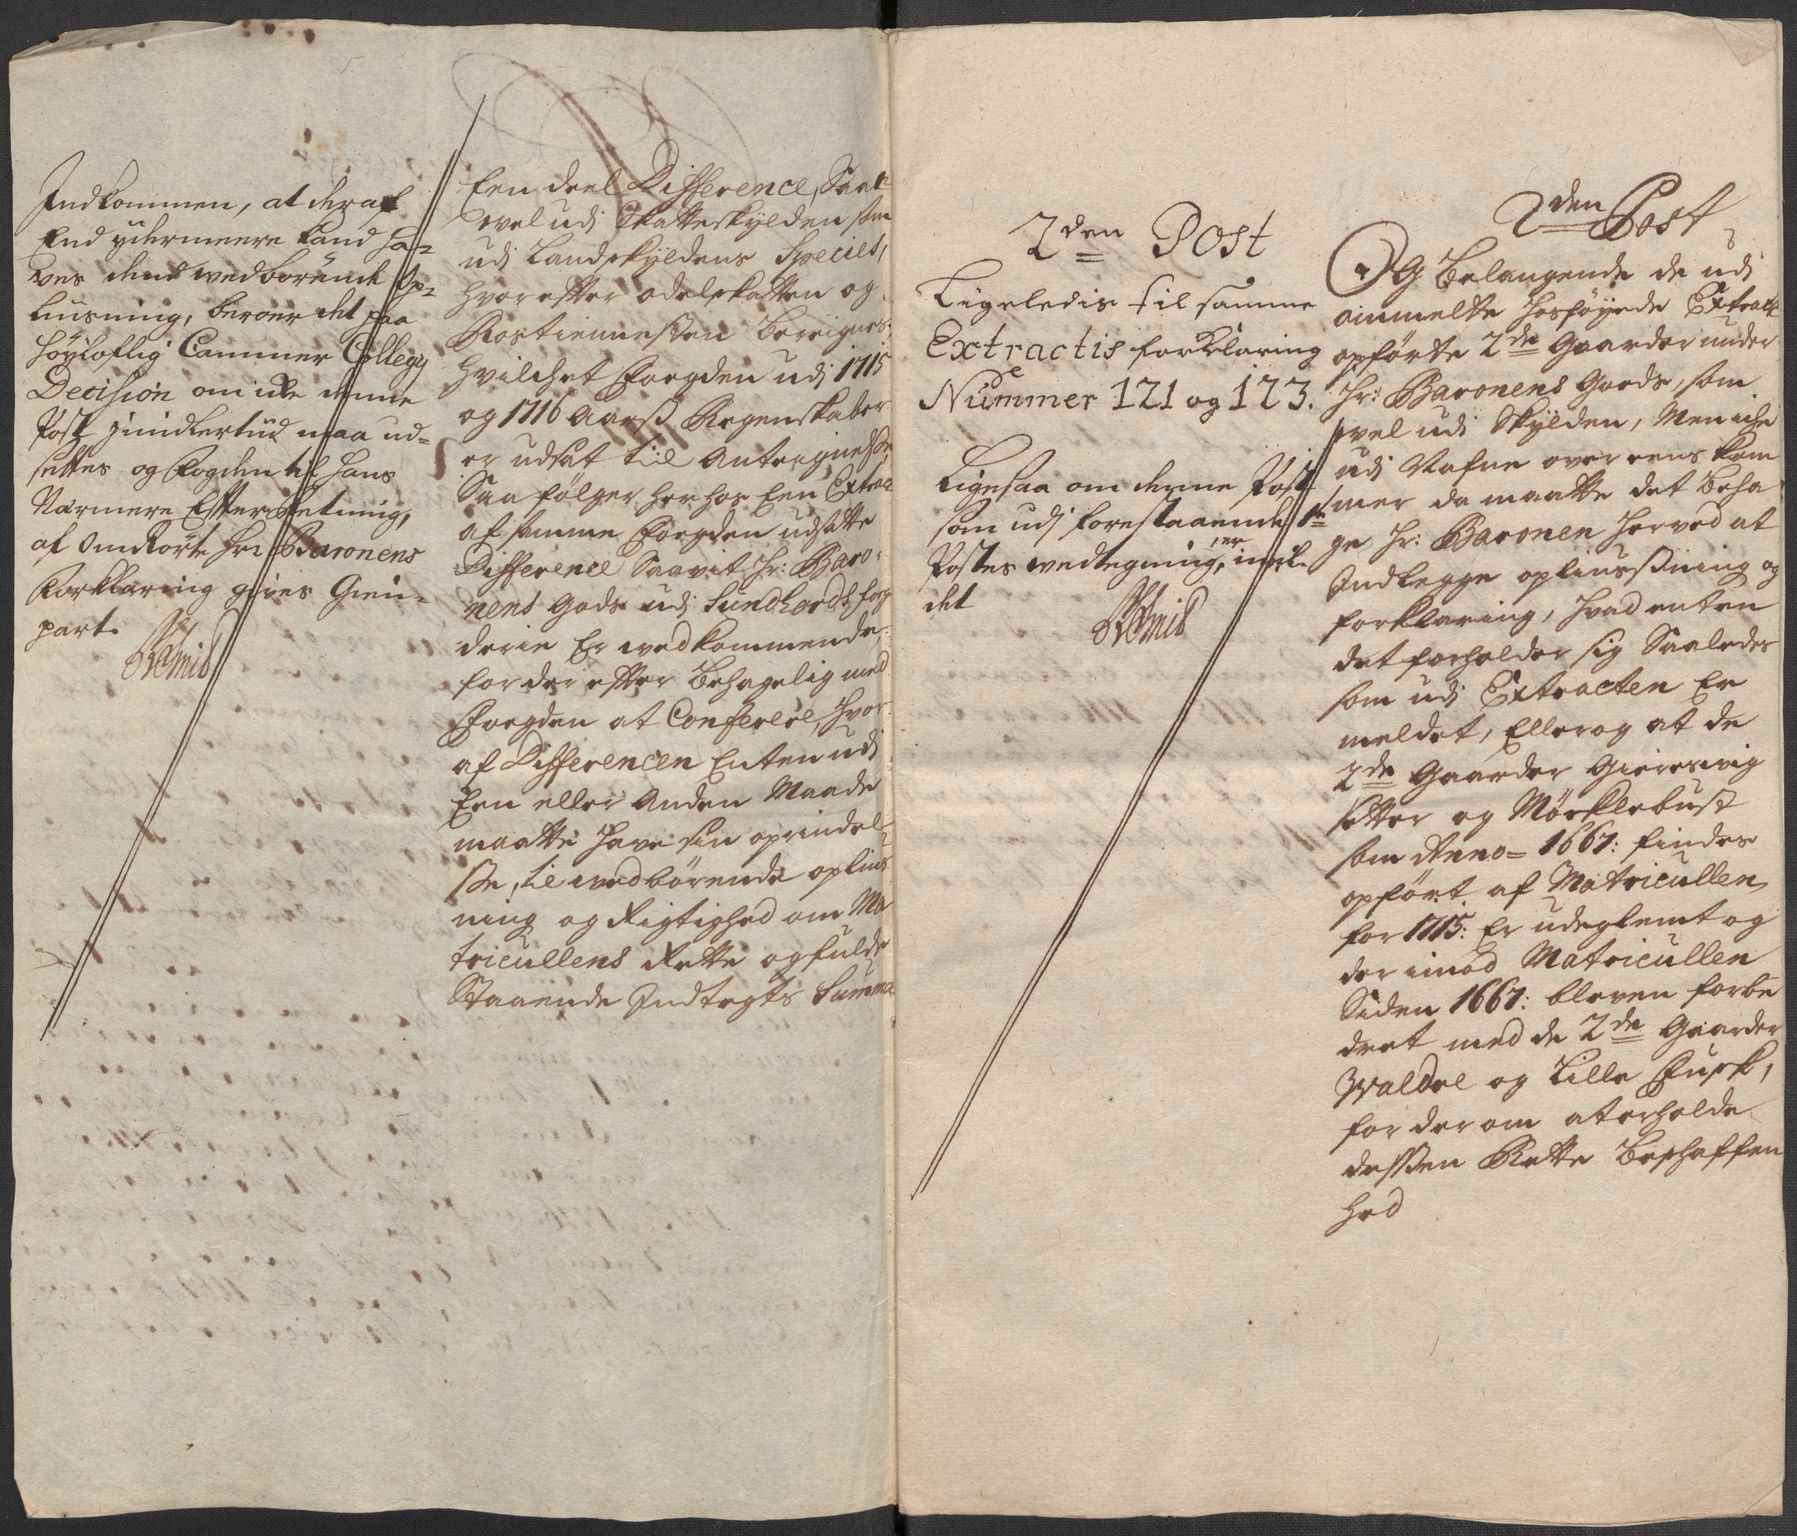 Indkommen, at deraf
End ydermeere kand ha-
ves dend vedbørende Op-
liusning, beroer det paa
Høyloflig Cammer Collegy
Decision om icke denne
Post jimidlertiid maa ud-
settes og Fogden til hans
Nærmere Effterretning,
af Omrørte Hr: Baronens
Forklaring gives Gien-
part.
Een deel Difference, Saa
vel udj Skatteskylden som
udj Landskyldens Species,
hvorefter odelskatten og
Rostiennesten bereignes,
hvilchet Fogden udj 1715
og 1716 Aars Regenskaber
er udsat til Antegnelse,
Saa følger herhos Een Extrac
af samme Fogden udsatte
Difference Saavit Hr: Baro-
nens Gods udj Sundhords fog
derie Er vedkommende,
for der efter Behagelig med
Fogden at Conferere, hvor
af Differencen Enten udj
Een eller Anden Maade
maatte have sin oprindel-
se, til vedbørende oplius
ning og Rigtighed om Ma
tricullens Rette og fulde
Staaende Indtegts Summa
2den Post
Ligeledis til samme
Extractis forklaring
Nummer 121 og 123.
Ligesaa om denne Post
som udj forestaaende 1te
Postes vedtegning, er meel-
det
2den Post
Og Belangende de udj
ommelte hosføyede Extract
opførte 2de Gaarder under
Hr: Baronens Gods, som
vel udj Skylden, Men iche
udj Nafne overeens kom
mer da maatte det beha
ge Hr: Baronen herved at
Indlegge opliussning og
forklaring, hvad enten
det forholder sig Saaledes
som udj Extracten Er
meldet, Eller og at de
2de Gaarder Gieresvig
setter og Mørklebust
som Anno 1667: findes
opført af Matricullen
for 1715: Er udeglemt og
der imod Matricullen
Siden 1667: bleven forbe
dret med de 2de Gaarder
Waldel og Lille Fusk,
for der om at erholde
dessen Rette Beschaffen
hed